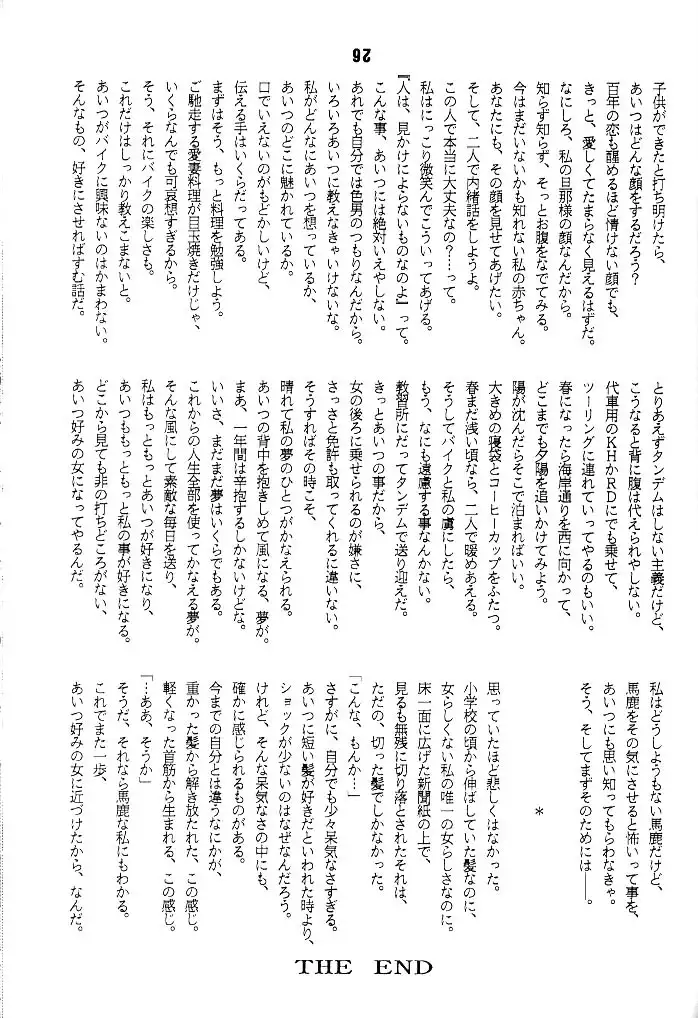 26
子供ができたと打ち明けたら、
あいつはどんな顔をするだろう？
百年の恋も醒めるほど情けない顔でも、
きっと、愛しくてたまらなく見えるはずだ。
なにしろ、私の旦那様の顔なんだから。
知らず知らず、そっとお腹をなでてみる。
今はまだいないかも知れない私の赤ちゃん。
あなたにも、その顔を見せてあげたい。
そして、二人で内緒話をしようよ。
この人で本当に大丈夫なの？……って。
私はにっこり微笑んでこういってあげる。
『人は、見かけによらないものなのよ』って。
こんな事、あいつには絶対いえやしない。
あれでも自分では色男のつもりなんだから。
いろいろあいつに教えなきゃいけないな。
私がどんなにあいつを想っているか、
あいつのどこに魅かれているか。
口でいえないのがもどかしいけど、
伝える手はいくらだってある。
まずはそう、もっと料理を勉強しよう。
ご馳走する愛妻料理が目玉焼きだけじゃ、
いくらなんでも可哀想すぎるから。
そう、それにバイクの楽しさも。
これだけはしっかり教えこまないと。
あいつがバイクに興味ないのはかまわない。
そんなもの、好きにさせればすむ話だ。
とりあえずタンデムはしない主義だけど、
こうなると背に腹は代えられやしない。
代車用のＫＨかＲＤにでも乗せて、
ツーリングに連れていってやるのもいい。
春になったら海岸通りを西に向かって、
どこまでも夕陽を追いかけてみよう。
陽が沈んだらそこで泊まればいい。
大きめの寝袋とコーヒーカップをふたつ。
春まだ浅い頃なら、二人で暖めあえる。
そうしてバイクと私の虜にしたら、
もう、なにも遠慮する事なんかない。
教習所にだってタンデムで送り迎えだ。
きっとあいつの事だから、
女の後ろに乗せられるのが嫌さに、
さっさと免許も取ってくれるに違いない。
そうすればその時こそ、
晴れて私の夢のひとつがかなえられる。
あいつの背中を抱きしめて風になる、夢が。
まあ、一年間は辛抱するしかないけどな。
いいさ、まだまだ夢はいくらでもある。
これからの人生全部を使ってかなえる夢が。
そんな風にして素敵な毎日を送り、
私はもっともっとあいつが好きになり、
あいつももっともっと私の事が好きになる。
どこから見ても非の打ちどころがない、
あいつ好みの女になってやるんだ。
私はどうしようもない馬鹿だけど、
馬鹿をその気にさせると怖いって事を、
あいつにも思い知ってもらわなきゃ。
そう、そしてまずそのためには――。
＊
思っていたほど悲しくはなかった。
小学校の頃から伸ばしていた髪なのに、
女らしくない私の唯一の女らしさなのに。
床一面に広げた新聞紙の上で、
見るも無残に切り落とされたそれは、
ただの、切った髪でしかなかった。
「こんな、もんか…」
さすがに、自分でも少々呆気なさすぎる。
あいつに短い髪が好きだといわれた時より、
ショックが少ないのはなぜなんだろう。
けれど、そんな呆気なさの中にも、
確かに感じられるものがある。
今までの自分とは違うなにかが、
重かった髪から解き放たれた、この感じ。
軽くなった首筋から生まれる、この感じ。
「…ああ、そうか」
そうだ、それなら馬鹿な私にもわかる。
これでまた一歩、
あいつ好みの女に近づけたから、なんだ。
THE END